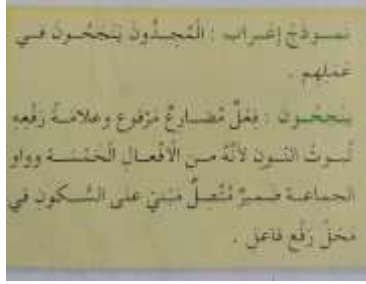 نَمـوذَجُ إعْـراب : الْمُجِـدُّونَ يَنْجَحُـونَ فـي
عَمَلِهِم .
يَنْجَحُـون : فِعْلٌ مُضـارِعٌ مَرْفوع وعلامَـةُ رَفْعِهِ
ثُبـوتُ النّـون لأنَّهُ مـن الْأفْعـالِ الْخَمْسَـة وواو
الجماعـة ضميـرٌ مُتَّصِلٌ مَبْنيّ على السُّـكونِ في
مَحَلِّ رَفْعٍ فاعل .